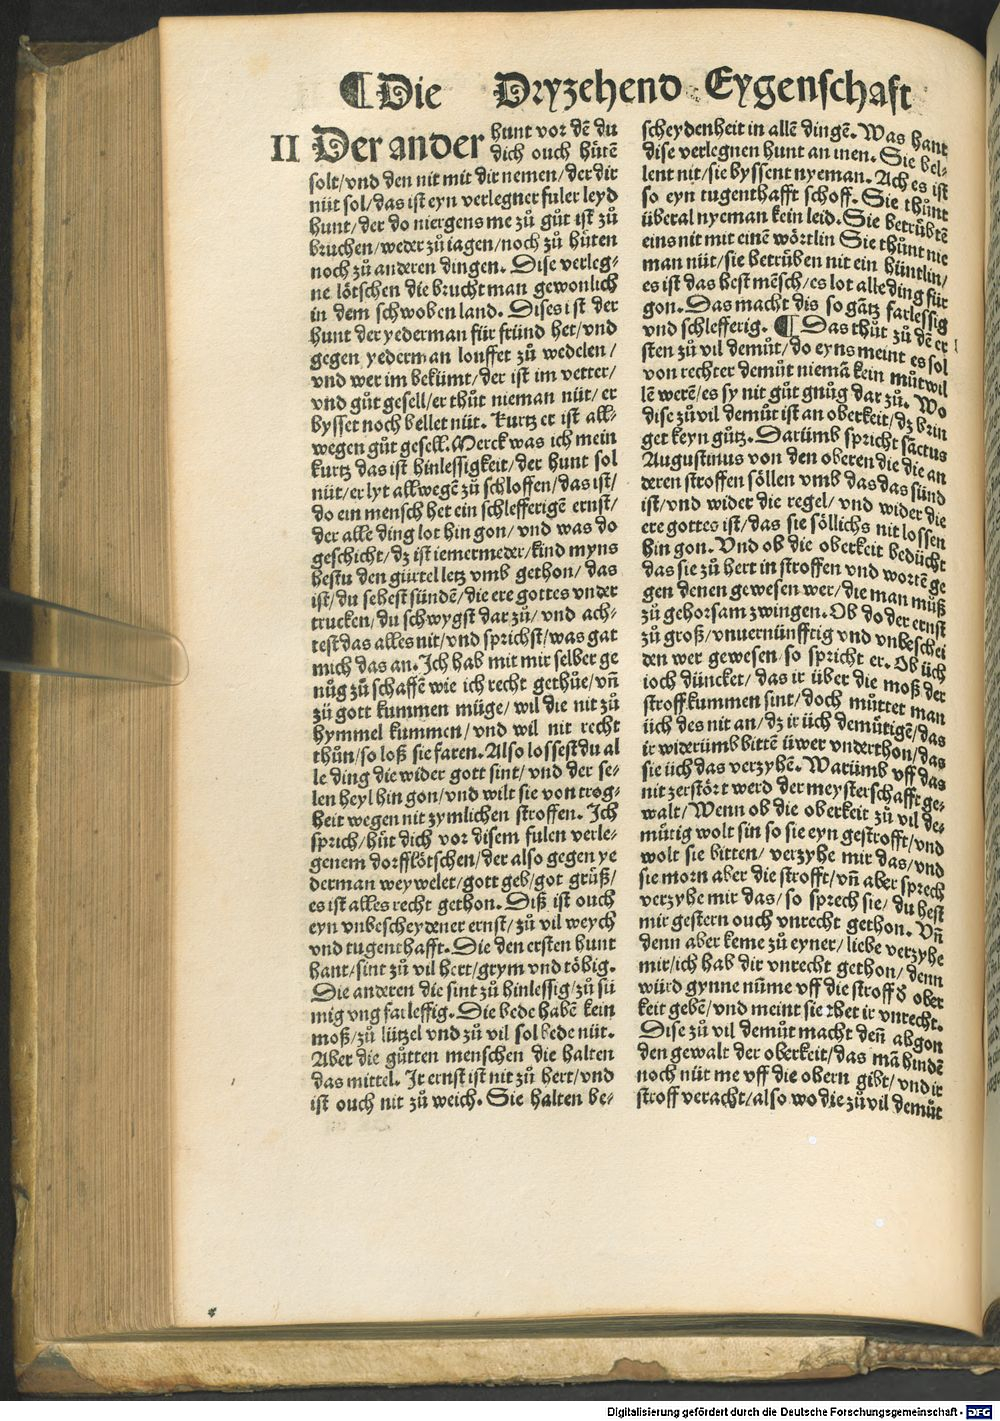 ¶Die Dryzehend Eygenschaft
II Der ander hunt vor dē du
dich ouch hütē
solt/vnd den nit mit dir nemen/der dir
nüt sol/das ist eyn verlegner fuler leyd
hunt/der do niergens me zů gůt ist zů
bruchen/weder zů iagen/noch zů hüten
noch zů anderen dingen. Dise verleg⸗
ne lötschen die brucht man gewonlich
in dem schwoben land. Dises ist der
hunt der yederman für fründ het/vnd
gegen yederman louffet zů wedelen/
vnd wer im bekümt/der ist im vetter/
vnd gůt gesell/er thůt nieman nüt/er
bysset noch bellet nüt. Kurtz er ist all⸗
wegen gůt gesell. Merck was ich mein
kurtz das ist hinlessigkeit/der hunt sol
nüt/er lyt allwegē zů schloffen/das ist/
do ein mensch het ein schlefferigē ernst/
der alle ding lot hin gon/vnd was do
geschicht/dz ist iemermeder/kind myns
hestu den gürtel letz vmb gethon/das
ist/du sehest sündē/die ere gottes vnder
trucken/du schwygst dar zů/vnd ach⸗
test das alles nit/vnd sprichst/was gat
mich das an. Ich hab mit mir selber ge
nůg zů schaffē wie ich recht gethůe/vn̄
zů gott kummen müge/wil die nit zů
hymmel kummen/vnd wil nit recht
thůn/so loß sie faren. Also lossest du al
le ding die wider gott sint/vnd der se⸗
len heyl hin gon/vnd wilt sie von treg⸗
heit wegen nit zymlichen stroffen. Ich
sprich/hüt dich vor disem fulen verle⸗
genem dorfflötschen/der also gegen ye
derman weywelet/gott geb/got grüß/
es ist alles recht gethon. Diß ist ouch
eyn vnbescheydener ernst/zů vil weych
vnd tugenthafft. Die den ersten hunt
hant/sint zů vil hert/grym vnd töbig.
Die anderen die sint zů hinlessig/zů sü
mig vng farlessig. Die bede habē kein
moß/zů lützel vnd zů vil sol bede nüt.
Aber die gůtten menschen die halten
das mittel. Ir ernst ist nit zů hert/vnd
ist ouch nit zů weich. Sie halten be⸗
scheydenheit in allē dingē. Was hant
dise verlegnen hunt an inen. Sie bel⸗
lent nit/sie byssent nyeman. Ach es ist
so eyn tugenthafft schoff. Sie thůnt
überal nyeman kein leid. Sie betrůbtē
eins nit mit einē wörtlin Sie thůnt nie
man nüt/sie betrüben nit ein hüntlin/
es ist das best mēsch/es lot alle ding für
gon. Das macht dis so gātz farlessig
vnd schlefferig. ¶ Das thůt zů dē er
sten zů vil demůt/do eyns meint es sol
von rechter demůt niemā kein můtwil
lē werē/es sy nit gůt gnůg dar zů. Wo
dise zů vil demůt ist an oberkeit/dz brin
get keyn gůtz. Darümb spricht sāctus
Augustinus von den oberen die die an
deren stroffen söllen vmb das das sünd
ist/vnd wider die regel/vnd wider die
ere gottes ist/das sie söllichs nit lossen
hin gon. Vnd ob die oberkeit bedücht
das sie zů hert in stroffen vnd wortē ge
gen denen gewesen wer/die man můß
zů gehorsam zwingen. Ob do der ernst
zů groß/vnuernünfftig vnd vnbeschei
den wer gewesen/so spricht er. Ob üch
ioch düncket/das ir über die moß der
stroff kummen sint/doch můttet man
üch des nit an/dz ir üch demůtigē/das
ir widerümb bittē üwer vnderthon/das
sie üch das verzyhē. Warümb vff das
nit zerstört werd der meysterschafft ge⸗
walt/Wenn ob die oberkeit zů vil de⸗
můtig wolt sin so sie eyn gestrofft/vnd
wolt sie bitten/verzyhe mir das/vnd
sie morn aber die strofft/vn̄ aber sprech
verzyhe mir das/so sprech sie/du hest
mir gestern ouch vnrecht gethon. Vn̄
denn aber keme zů eyner/liebe verzyhe
mir/ich hab dir vnrecht gethon/denn
würd gynne nüme vff die stroff ð ober
keit gebē/vnd meint sie thet ir vnrecht.
Dise zů vil demůt macht den̄ abgon
den gewalt der oberkeit/das mā hindē
noch nüt me vff die obern gibt/vnd ir
stroff veracht/also wo die zů vil demůt
Digitalisierung gefördert durch die Deutsche Forschungsgemeinschaft - DFG